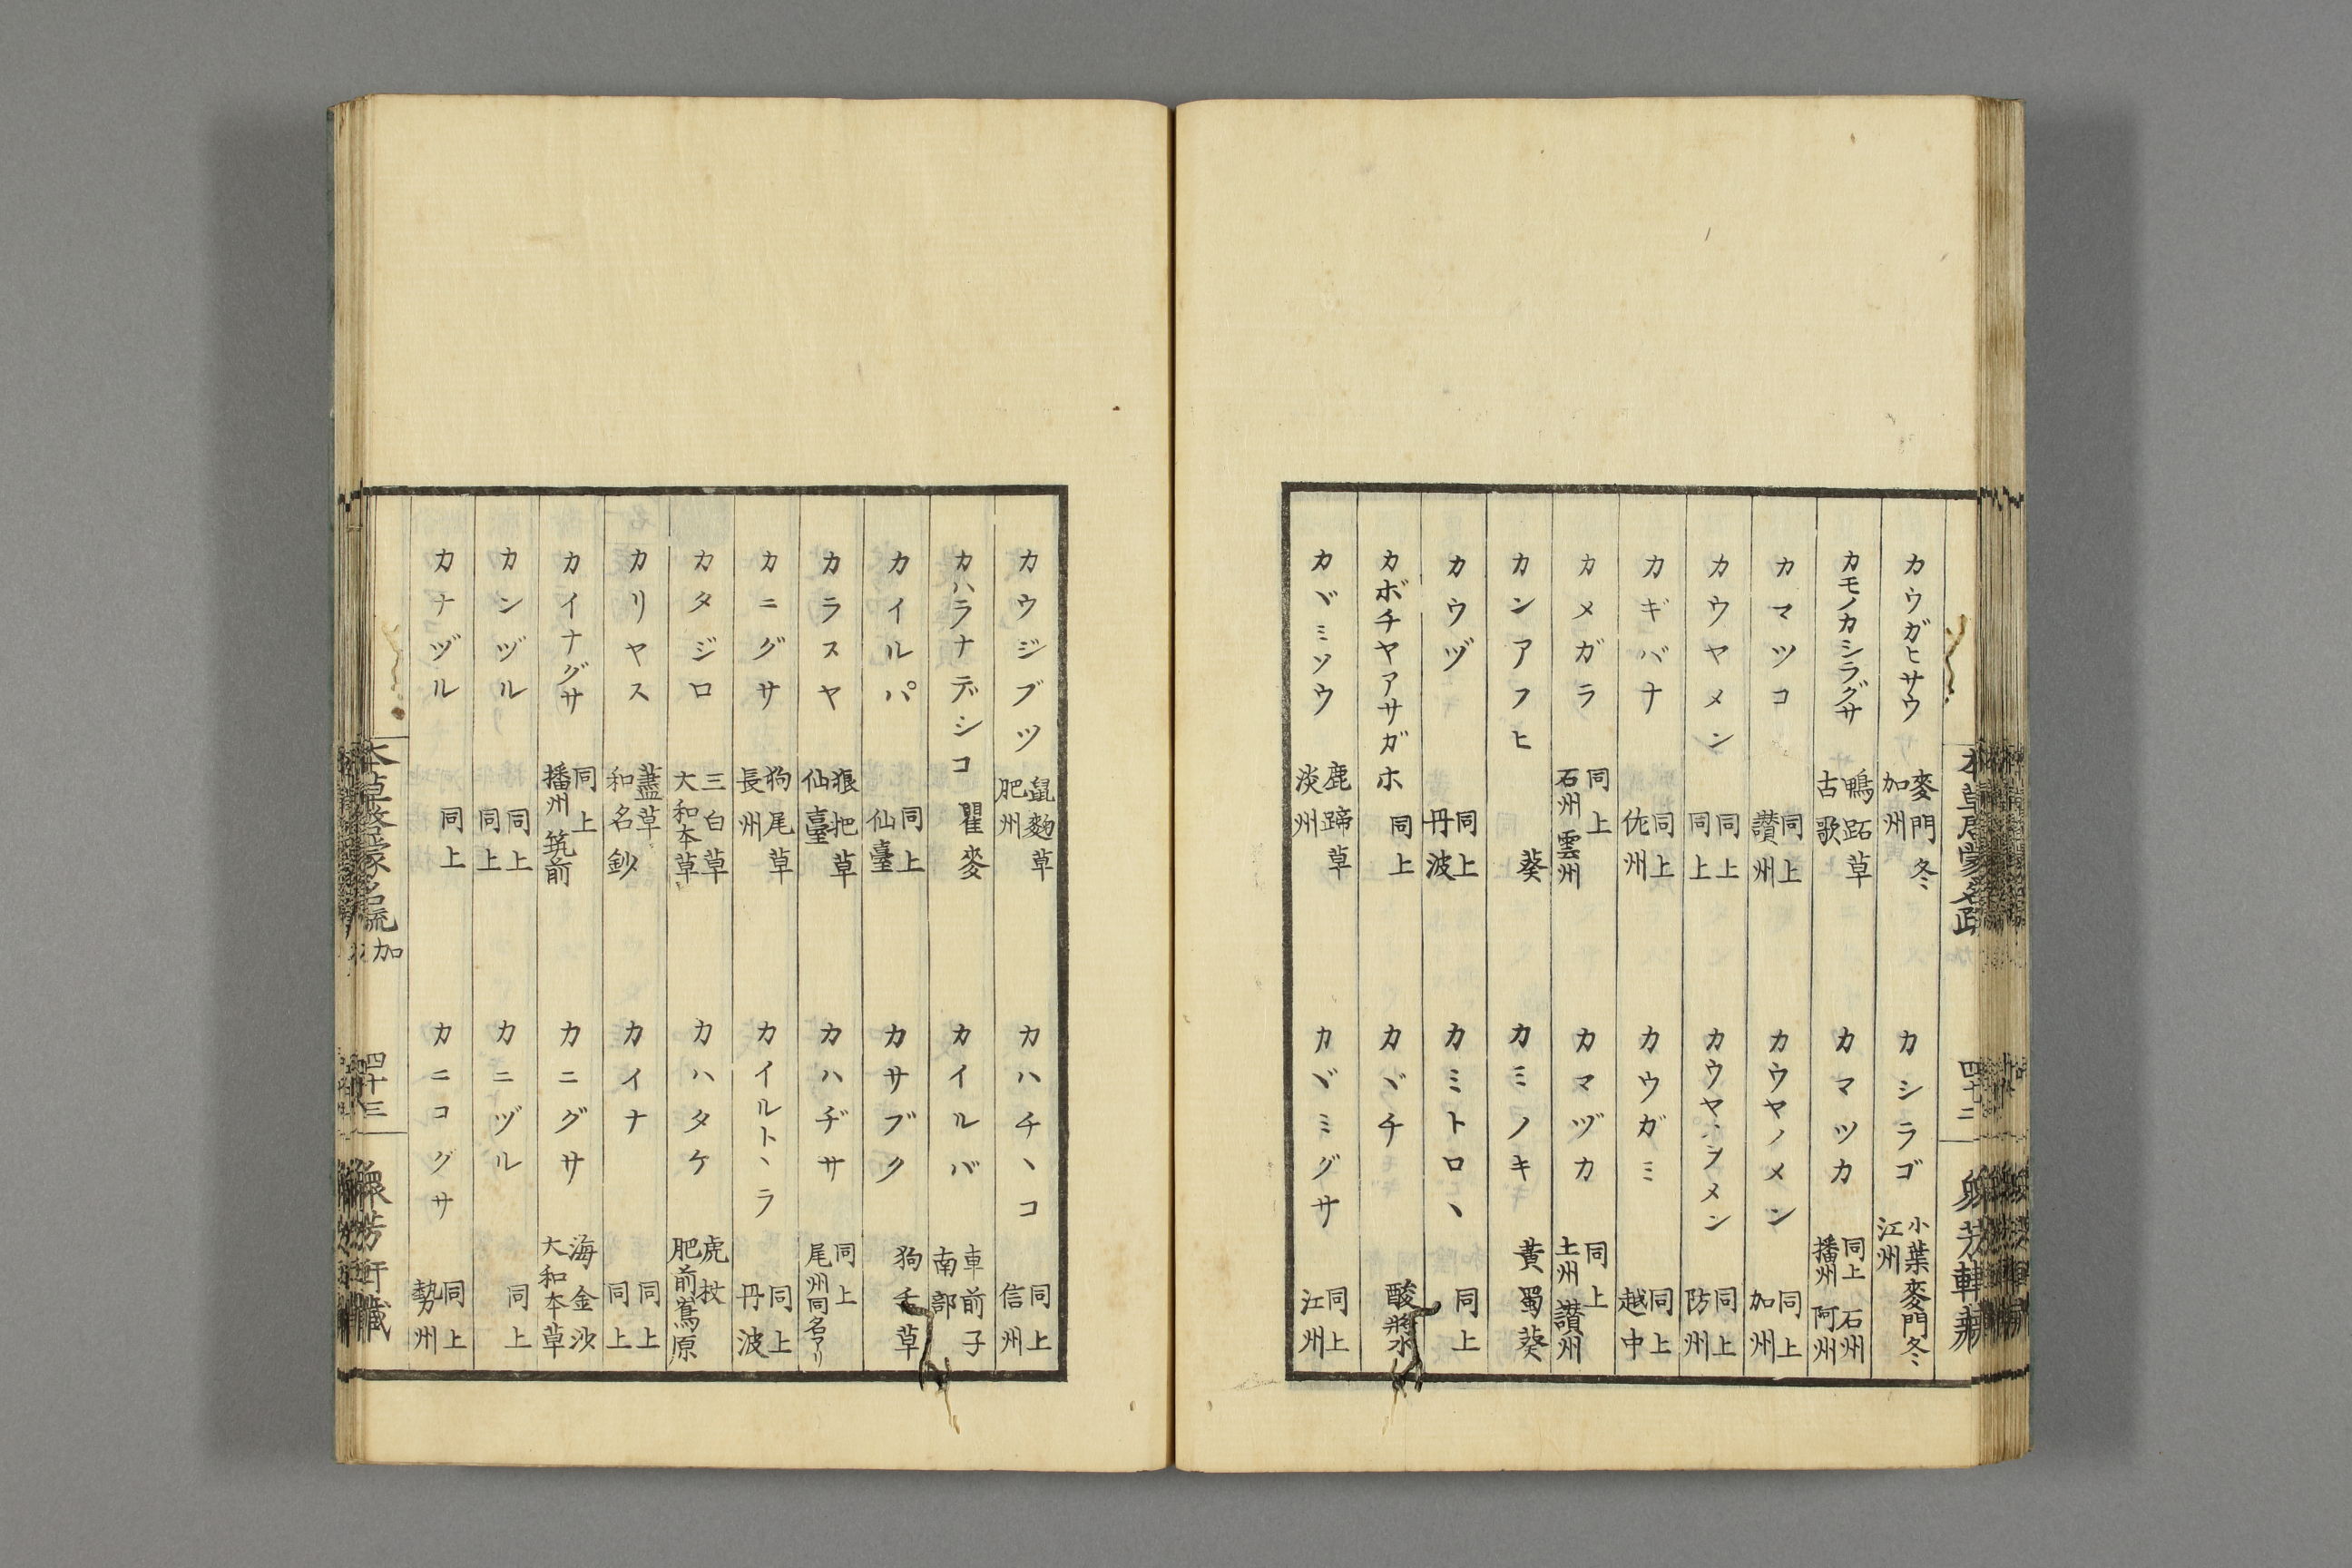 カウガヒサウ 麥門冬 加州
カシラゴ 小葉麥門冬 江州
カモノカシラグサ 鴨跖草 古歌
カマツカ 同上 石州 播州 阿州
カマツコ 同上 讃州
カウヤノメン 同上 加州
カウヤメン 同上 同上
カウヤハヲメン 同上 防州
カギバナ 同上 佐州
カウガミ 同上 越中
カメガラ 同上 石州 雲州
カマヅカ 同上 土州 讃州
カンアフヒ 葵
カミノキ 黄蜀葵
カウヅ 同上 丹波
カミトロヽ 同上
カボチヤアサガホ 同上
カヾチ 酸漿
カヾミソウ 鹿蹄草 淡州
カヾミグサ 同上 江州
カウジブツ 鼠麹草 肥州
カハチヽコ 同上 信州
カハラナデシコ 瞿麥
カイルバ 車前子 南部
カイルパ 同上 仙臺
カサブク 狗舌草
カラスヤ 狼把草 仙臺
カハヂサ 同上 尾州同名アリ
カニグサ 狗尾草 長州
カイルトヽラ 同上 丹波
カタジロ 三白草 大和本草
カハタケ 虎杖 肥前嶌原
カリヤス 藎草 和名鈔
カイナ 同上 同上
カイナグサ 同上 播州 筑前
カニグサ 海金沙 大和本草
カンヅル 同上 同上
カニヅル 同上
カナヅル 同上
カニコグサ 同上 勢州
加
四十三